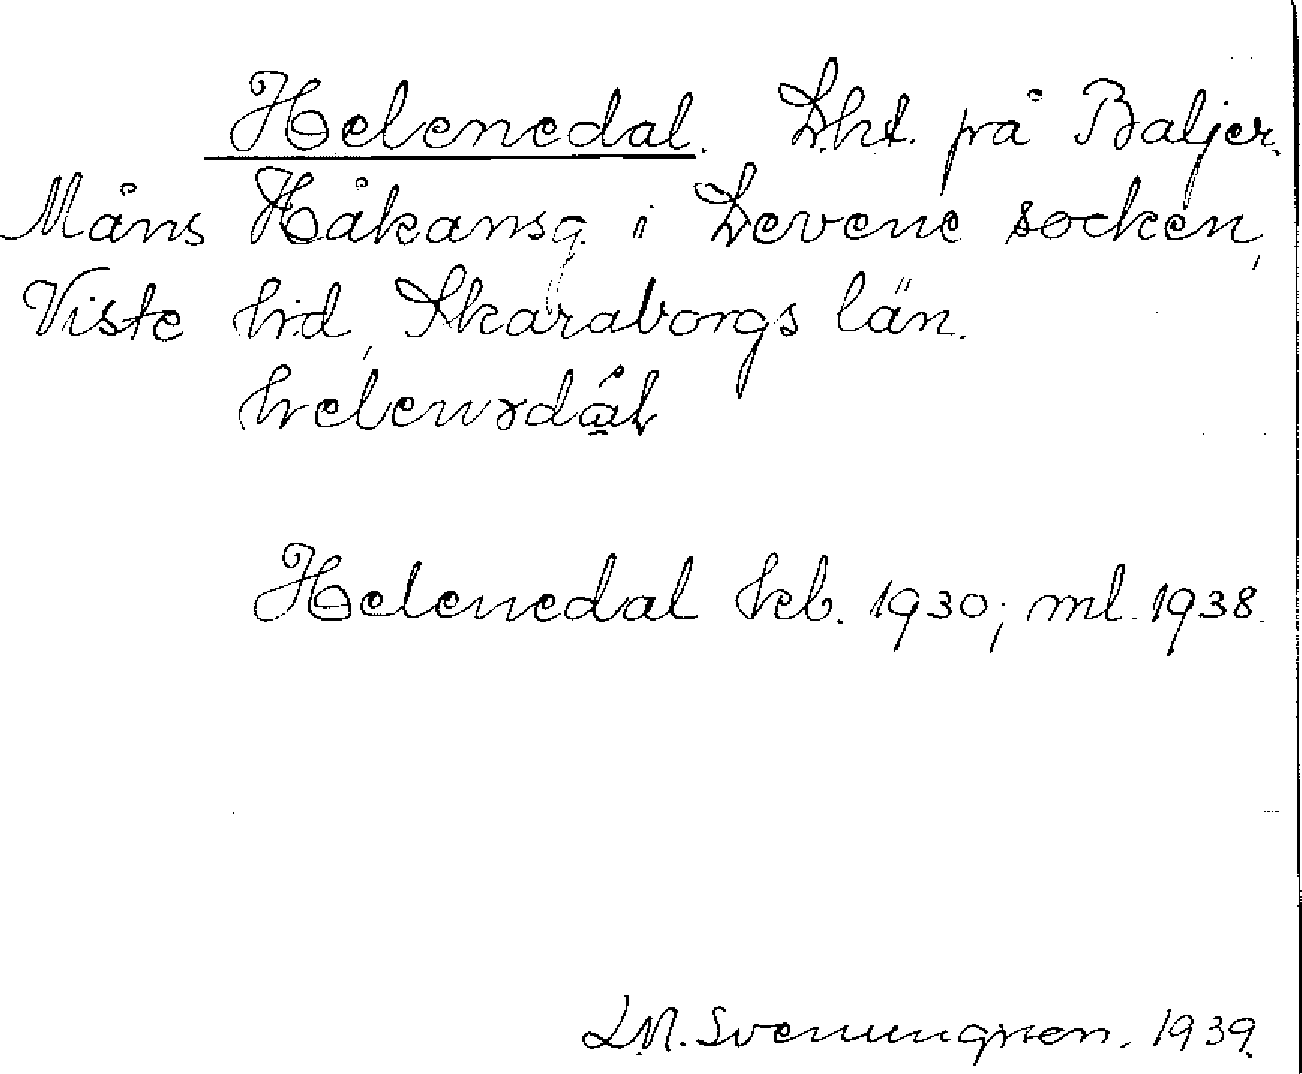 Helenedal. Lht. på Baljer.
Måns Håkansg. i Levene socken,
Viste hd, Skaraborgs län.
helenədál
Helenedal kb. 1930; ml. 1938.
Svenungsson. 1939.